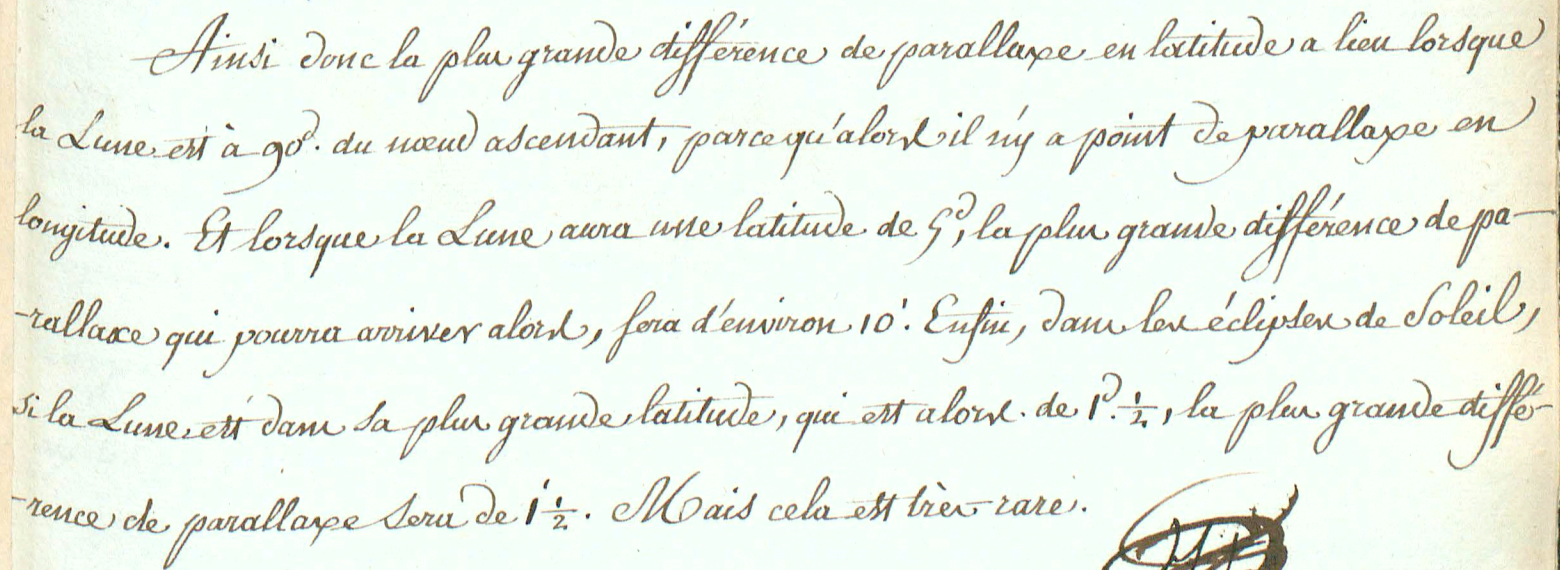 Ainsi donc la plus grande différence de parallaxe en latitude a lieu lorsque
la Lune est à 90<sup>d</sup>. du nœud ascendant, parcequ'alors il n'y a point de parallaxe en
longitude. Et lorsque la Lune aura une latitude de 5<sup>d</sup>, la plus grande différence de pa-
-rallaxe qui pourra arriver alors, sera d'environ 10'. Enfin, dans les éclipses de Soleil,
si la Lune est dans sa plus grande latitude, qui est alors de 1<sup>d</sup>. ½, la plus grande diffé-
-rence de parallaxe sera de 1' ½. Mais cela est très-rare.